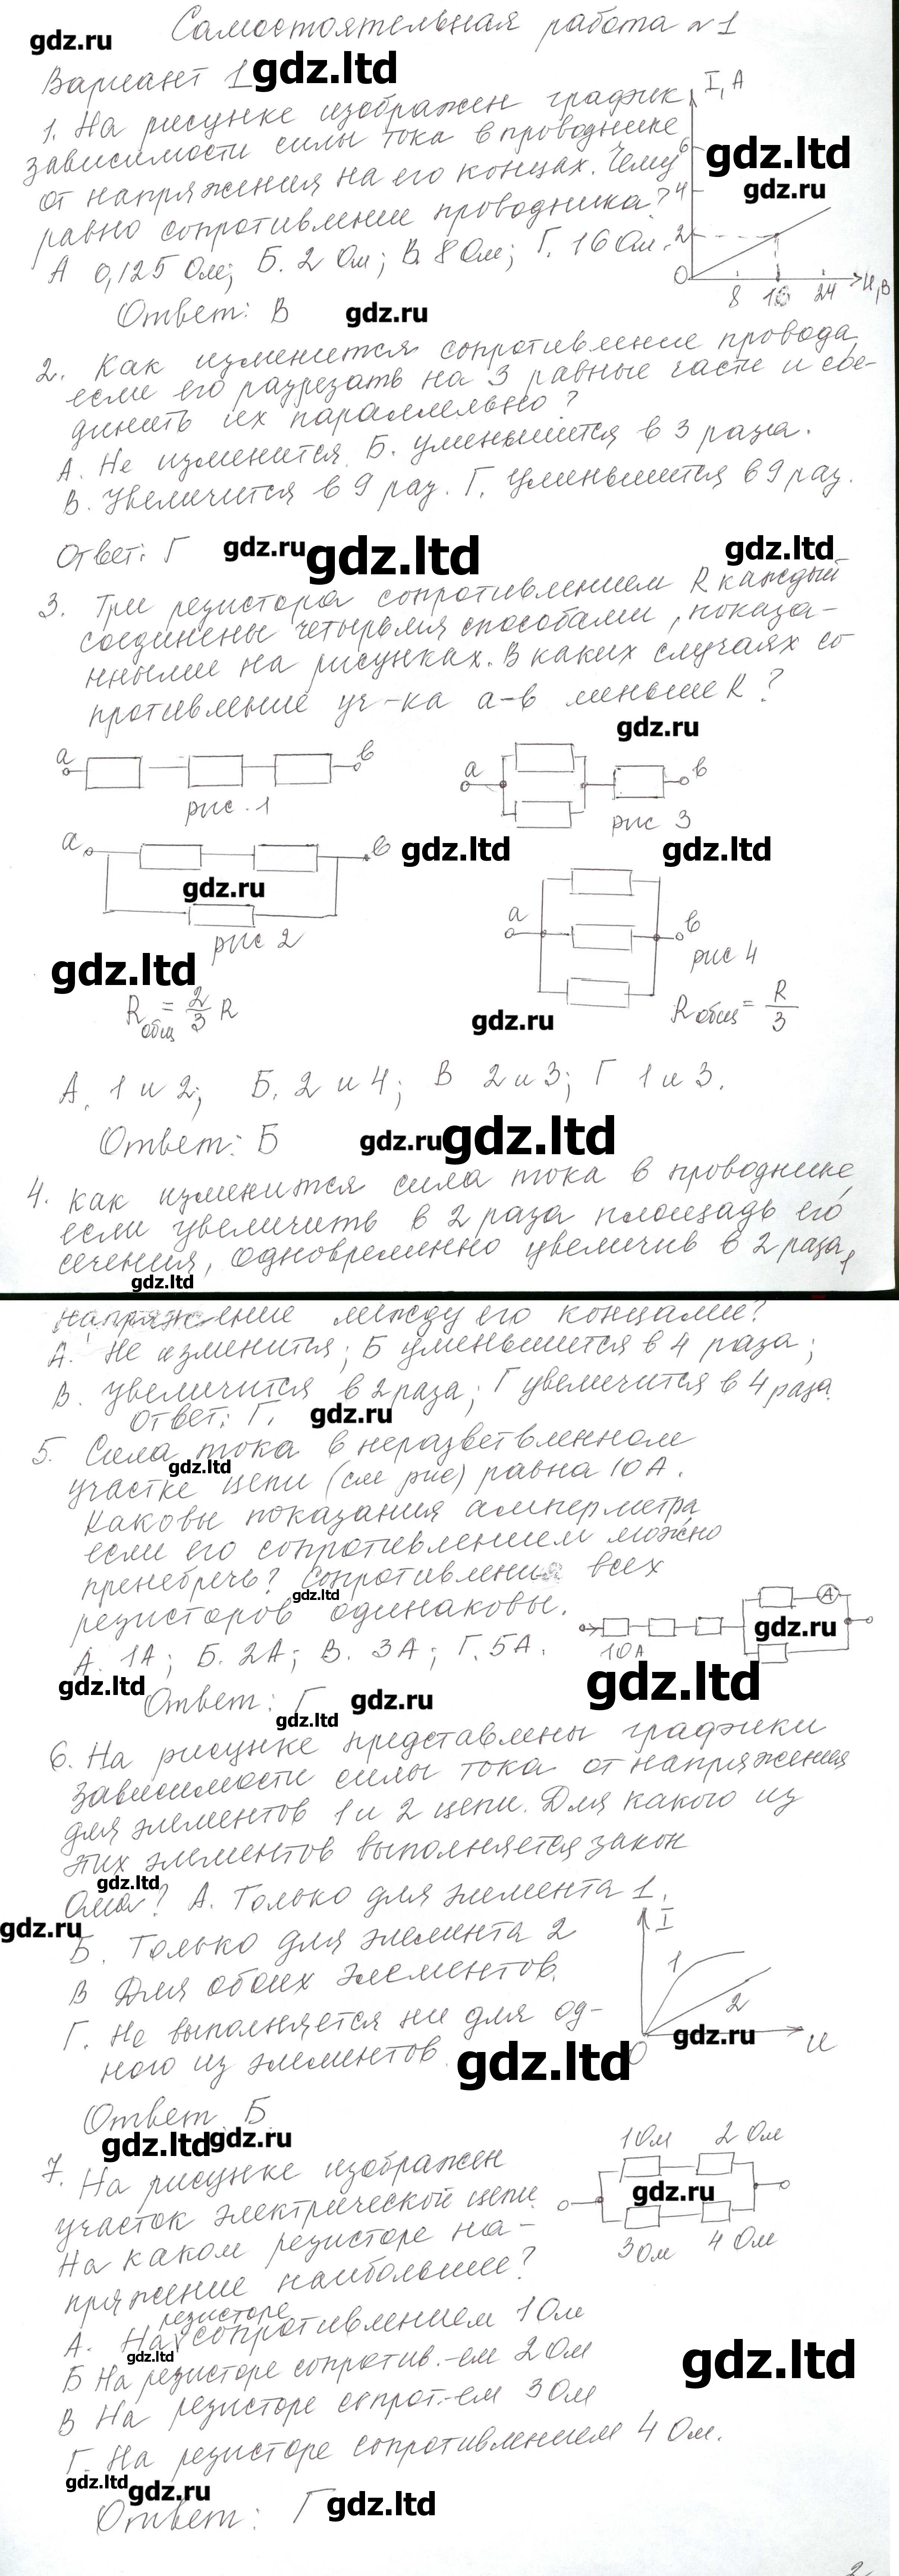 Самостоятельная работа №1
gdz.ru
Вариант 1
gdz.ltd
I, А
1. На рисунке изображен график
зависимости силы тока в проводнике
от напряжения на его концах. Чему
равно сопротивление проводника?
gdz.ltd
gdz.ru
6
4
2
0
8 16 24 U, В
А 0,125 Ом; Б. 2 Ом; В. 8 Ом; Г. 16 Ом.
Ответ: В
gdz.ru
2. Как изменится сопротивление провода,
если его разрезать на 3 равные части и сое-
динить их параллельно?
А. Не изменится. Б. Уменьшится в 3 раза.
В. Увеличится в 9 раз. Г. Уменьшится в 9 раз.
Ответ: Г
gdz.ru
gdz.ltd
gdz.ltd
3. Три резистора сопротивлением R каждый
соединены четырьмя способами, показа-
нными на рисунках. В каких случаях со
противление уч-ка а-в меньше R?
gdz.ru
а
в
рис. 1
а
в
рис 3
а
в
gdz.ltd
gdz.ltd
gdz.ru
рис 2
а
в
рис 4
gdz.ltd
R общ = 2/3 R
gdz.ru
R общ = R/3
А. 1 и 2; Б. 2 и 4; В 2 и 3; Г 1 и 3.
Ответ: Б
gdz.ru
gdz.ltd
4. Как изменится сила тока в проводнике,
если увеличить в 2 раза площадь его
сечения, одновременно увеличив в 2 раза,
gdz.ltd
напряжение между его концами?
А. Не изменится; Б уменьшится в 4 раза;
В. увеличится в 2 раза; Г увеличится в 4 раза.
Ответ: Г.
gdz.ru
5. Сила тока в неразветвленном
gdz.ltd
участке цепи (см рис) равна 10 А.
Каковы показания амперметра
если его сопротивлением можно
пренебречь? Сопротивления всех
gdz.ltd
резисторов одинаковы.
А
gdz.ru
10 А
А. 1А; Б. 2А; В. 3А; Г. 5А.
gdz.ltd
gdz.ltd
Ответ: Г
gdz.ru
gdz.ltd
6. На рисунке представлены графики
зависимости силы тока от напряжения
для элементов 1 и 2 цепи. Для какого из
этих элементов выполняется закон
gdz.ltd
Ома? А. Только для элемента 1.
gdz.ru
Б. Только для элемента 2
В Для обоих элементов.
Г. Не выполняется ни для од-
ного из элементов.
I
1
2
0
U
gdz.ru
gdz.ltd
Ответ Б.
gdz.ltd
gdz.ru
7. На рисунке изображен
участок электрической цепи.
На каком резисторе на-
пряжение наибольшее?
1 Ом 2 Ом
gdz.ru
3 Ом 4 Ом
резисторе
А. На сопротивлением 1 Ом
gdz.ltd
Б На резисторе сопротив.-ем 2 Ом
gdz.ltd
В На резисторе сопрот.-ем 3 Ом
Г. На резисторе сопротивлением 4 Ом.
gdz.ltd
gdz.ru
Ответ: Г
gdz.ltd
2